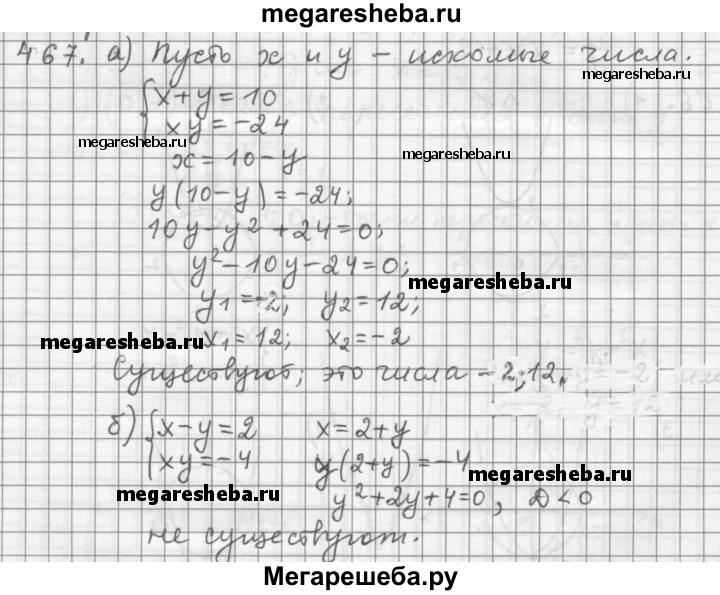 megaresheba.ru
467. а) Пусть x и y – искомые числа.
megaresheba.ru
{x+y=10
xy=-24
megaresheba.ru
x=10-y
megaresheba.ru
y(10-y)=-24;
10y-y²+24=0;
y²-10y-24=0;
megaresheba.ru
y₁=-2; y₂=12;
megaresheba.ru
x₁=12; x₂=-2
Существуют; это числа -2; 12.
б) {x-y=2 x=2+y
xy=-4 y(2+y)=-4
megaresheba.ru
megaresheba.ru
y²+2y+4=0, D<0
не существуют.
Мегарешеба.ру